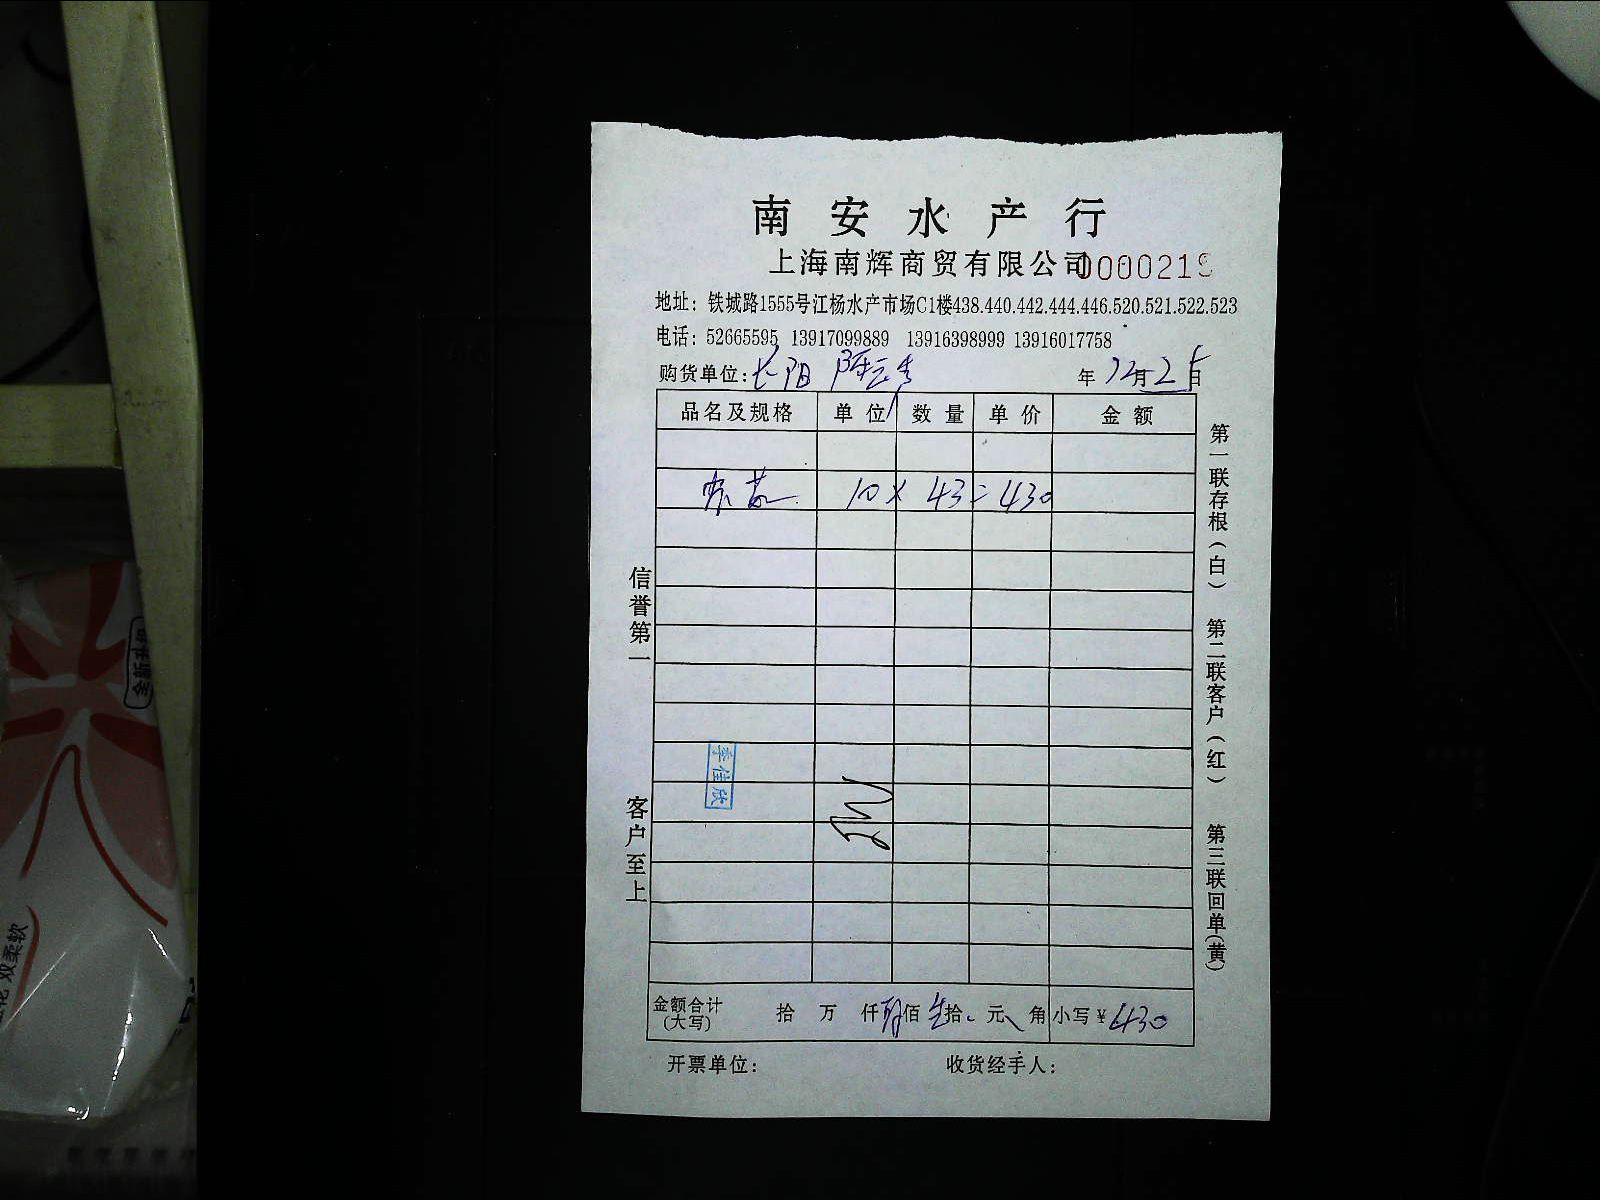 南安水产行
上海南辉商贸有限公司 000021
地址：铁城路1555号江杨水产市场C1楼438.440.442.444.446.520.521.522.523
电话：52665595 13917099889 13916398999 13916017758
购货单位：长阳 年12月25日
品名及规格 单位 数量 单价 金额
10 × 43 = 430
信誉第一
客户至上
李佳欣
第一联存根（白） 第二联客户（红） 第三联回单（黄）
金额合计（大写） 拾 万 仟 肆佰 叁拾 元 角 小写￥430
开票单位： 收货经手人：
全新升级
双柔软